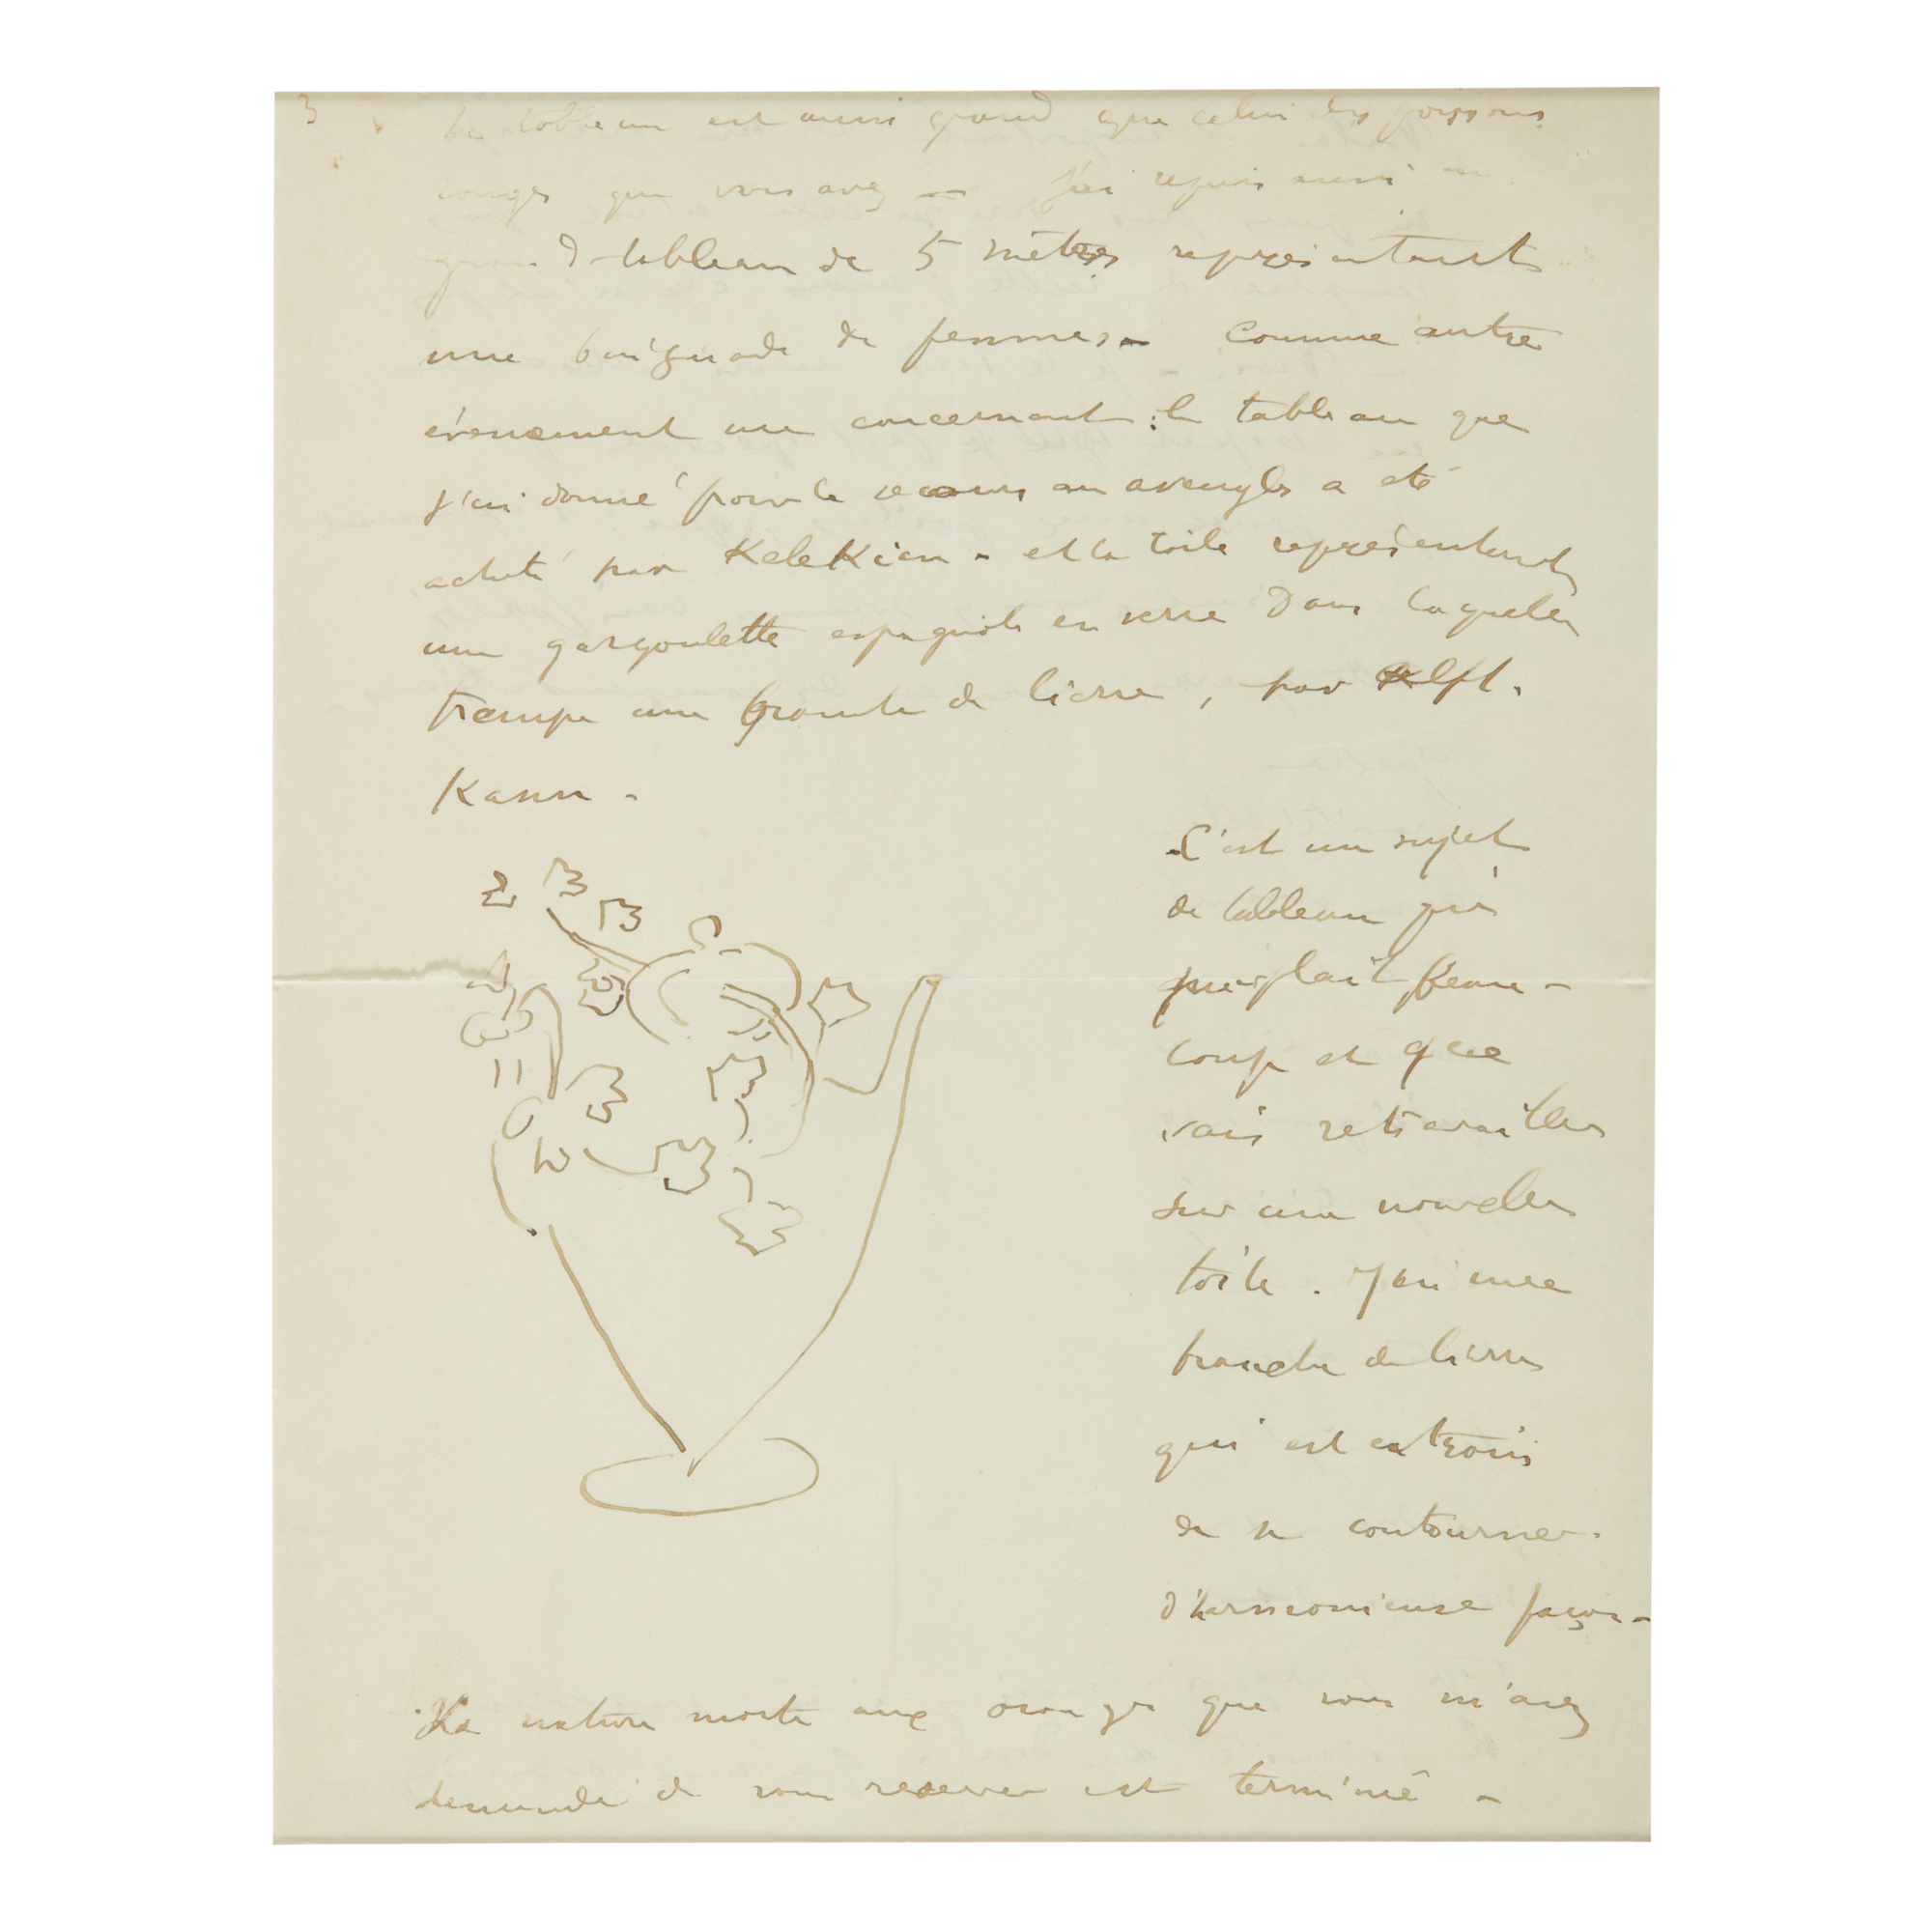 3
Le tableau est aussi grand que celui des poissons
rouges que vous avez — J'ai repris aussi un
grand tableau de 5 mètres représentant
une baignade de femmes — Comme autre
évenement me concernant : le tableau que
j'ai donné pour le secours au aveugles a eté
acheté par KeleKian - et la toile représentant
une gargoulette espagnole en verre dans laquelle
trempe une branche de lierre, par Alph.
Kann -
C'est un sujet
de tableau qui
me plait beau-
coup et que
vais retravailler
sur une nouvelle
toile . J'ai une
branche de lierre
qui est en train
de se contourner
d'harmonieuse façon -
La nature morte aux oranges que vous m'avez
demandé de vous reserver est terminé -